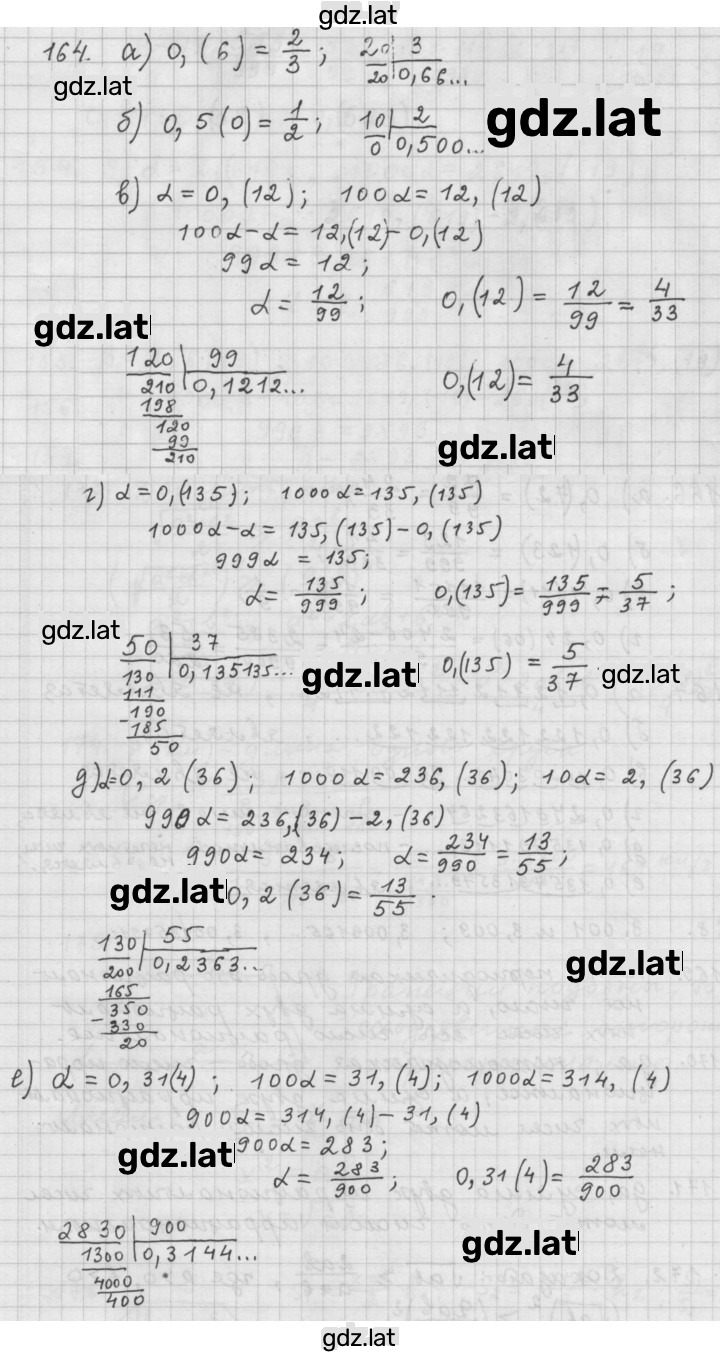 gdz.lat
164. а) 0, (6) = 2/3 ; 20 | 3
20 | 0,66...
gdz.lat
б) 0, 5(0) = 1/2 ; 10 | 2
0 | 0,500...
gdz.lat
в) α = 0, (12); 100α = 12, (12)
100α-α = 12,(12)-0,(12)
99α = 12;
α = 12/99 ; 0,(12) = 12/99 = 4/33
gdz.lat
120 | 99
210 | 0,1212...
198
120
99
210
0,(12) = 4/33
gdz.lat
г) α = 0,(135); 1000α = 135, (135)
1000α-α = 135, (135) - 0, (135)
999α = 135;
α = 135/999 ; 0,(135) = 135/999 = 5/37 ;
gdz.lat
50 | 37
130 | 0,135135...
111
-190
185
50
gdz.lat
0,(135) = 5/37
gdz.lat
д) α=0, 2 (36); 1000α = 236, (36); 10α = 2, (36)
990α = 236,(36) - 2, (36)
990α = 234; α = 234/990 = 13/55 ;
gdz.lat
0, 2 (36) = 13/55 .
130 | 55
200 | 0,2363...
165
350
-330
20
gdz.lat
е) α = 0, 31(4) ; 100α = 31, (4); 1000α = 314, (4)
900α = 314, (4) - 31, (4)
900α = 283;
gdz.lat
α = 283/900 ; 0,31(4) = 283/900
2830 | 900
1300 | 0,3144...
4000
400
gdz.lat
gdz.lat